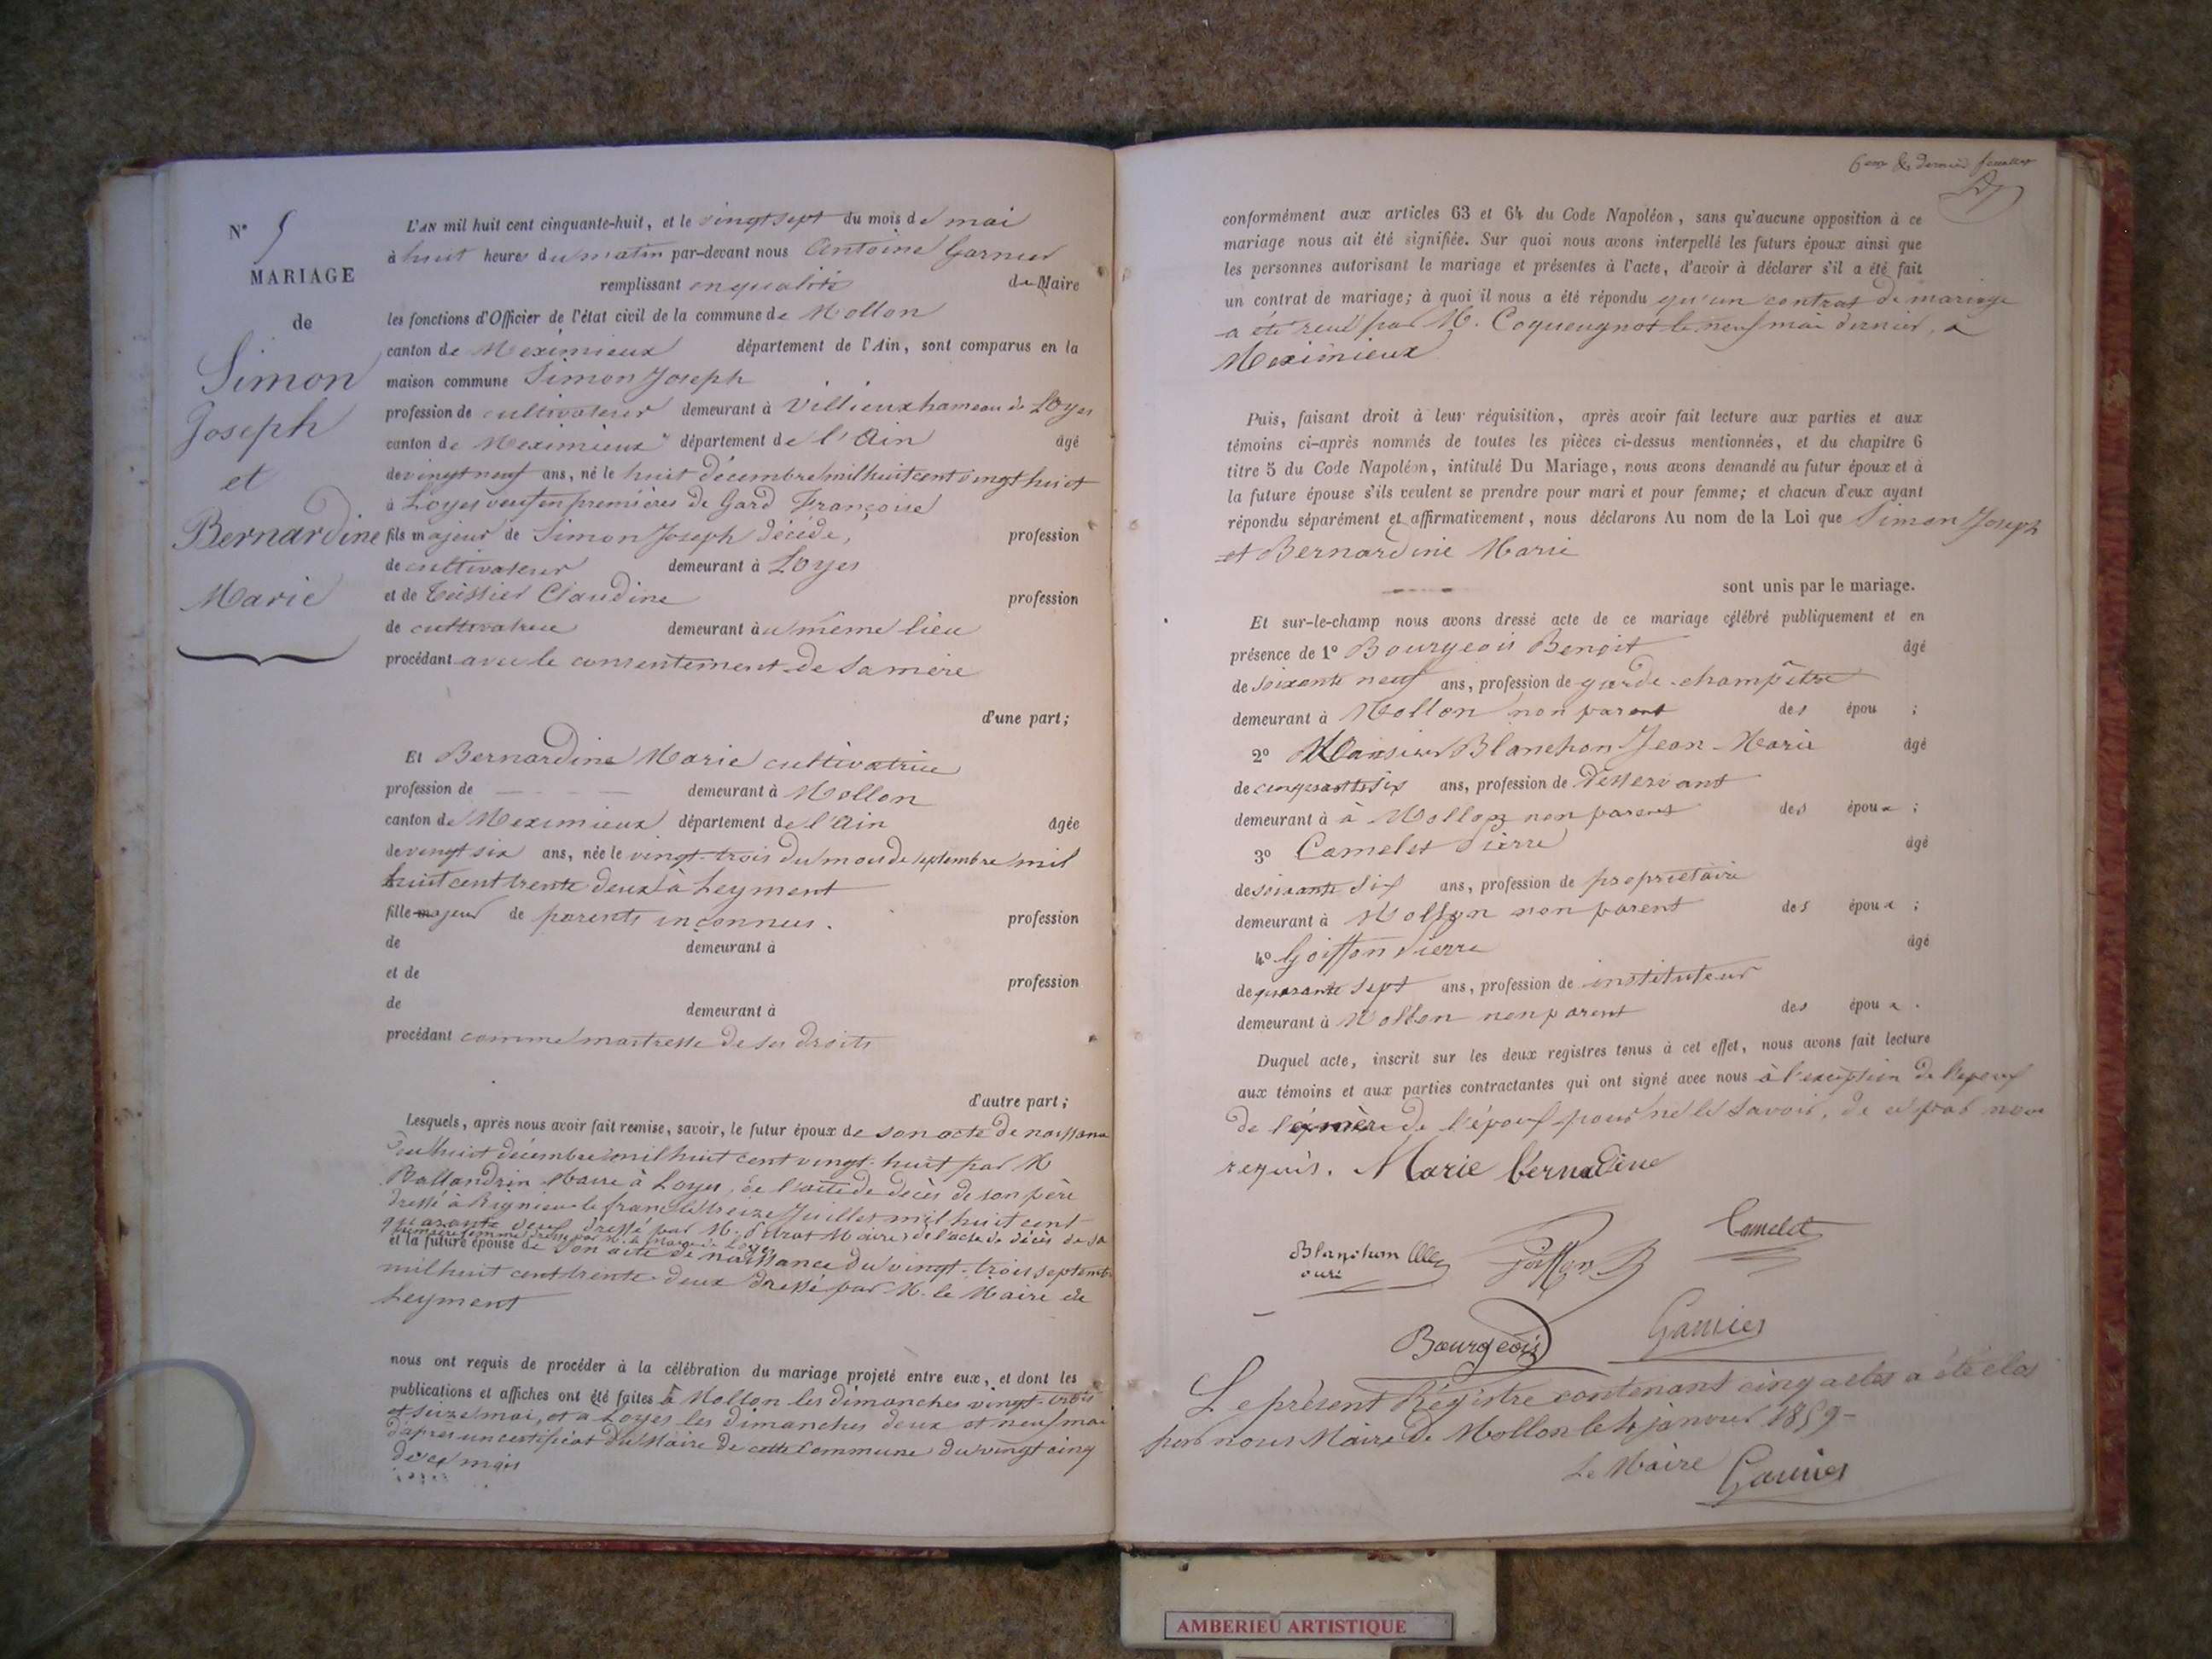 N° 5
MARIAGE
de
Simon
Joseph
et
Bernardine
Marie
L'AN mil huit cent cinquante-huit, et le vingt sept du mois de mai
à huit heures du matin par-devant nous Antoine Garnier
remplissant en qualité de Maire
les fonctions d'Officier de l'état civil de la commune de Mollon
canton de Meximieux département de l'Ain, sont comparus en la
maison commune Simon Joseph
profession de cultivateur demeurant à Villieux hameau de Loyes
canton de Meximieux département de l'Ain âgé
de vingt neuf ans, né le huit décembre mil huit cent vingt huit
à Loyes veuf en premières de Gard Françoise
fils majeur de Simon Joseph décédé, profession
de cultivateur demeurant à Loyes
et de Teissier Claudine profession
de cultivatrice demeurant àu même lieu
procédant avec le consentement de sa mère
d'une part;
Et Bernardine Marie cultivatrice
profession de — — — demeurant à Mollon
canton de Meximieux département de l'Ain âgée
de vingt six ans, née le vingt-trois du mois de septembre mil
huit cent trente deux à Leyment
fille majeur de parents inconnus. profession
de demeurant à
et de profession
de demeurant à
procédant comme maitresse de ses droits
d'autre part;
Lesquels, après nous avoir fait remise, savoir, le futur époux de son acte de naissance
du huit décembre mil huit cent vingt-huit par M
Ballandrin Maire à Loyes, de l'acte de décès de son père
dressé à Rignieu le franc le treize Juillet mil huit cent
quarante neuf dressé par M. Maire, de l'acte de décès de sa
première femme dressé par M. le Maire de Loyes
et la future épouse de son acte de naissance du vingt-trois septemb
mil huit cent trente-deux dressé par M. le Maire de
Leyment
nous ont requis de procéder à la célébration du mariage projeté entre eux, et dont les
publications et affiches ont été faites à Mollon les dimanches vingt-trois
et seize mai, et a Loyes les dimanches deux et neuf mai
d'après un certificat du Maire de cette commune du vingt cinq
de ce mois
6eme & dernier feuillet
conformément aux articles 63 et 64 du Code Napoléon, sans qu'aucune opposition à ce
mariage nous ait été signifiée. Sur quoi nous avons interpellé les futurs époux ainsi que
les personnes autorisant le mariage et présentes à l'acte, d'avoir à déclarer s'il a été fait
un contrat de mariage; à quoi il nous a été répondu qu'un contrat de mariage
a été reçu par M. Coqueugnot le neuf mai dernier, a
Meximieux
Puis, faisant droit à leur réquisition, après avoir fait lecture aux parties et aux
témoins ci-après nommés de toutes les pièces ci-dessus mentionnées, et du chapitre 6
titre 5 du Code Napoléon, intitulé Du Mariage, nous avons demandé au futur époux et à
la future épouse s'ils veulent se prendre pour mari et pour femme; et chacun d'eux ayant
répondu séparément et affirmativement, nous déclarons Au nom de la Loi que Simon Joseph
et Bernardine Marie
sont unis par le mariage.
Et sur-le-champ nous avons dressé acte de ce mariage célébré publiquement et en
présence de 1° Bourgeois Benoit âgé
de soixante neuf ans, profession de garde-champêtre
demeurant à Mollon non parent des épou ;
2° Monsieur Blanchon Jean-Marie âgé
de cinquante six ans, profession de desservant
demeurant à à Mollon non parent des époux ;
3° Camelet Pierre âgé
de soixante six ans, profession de propriétaire
demeurant à Mollon non parent des époux ;
4° Goiffon Pierre âgé
de quarante sept ans, profession de instituteur
demeurant à Mollon non parent des époux .
Duquel acte, inscrit sur les deux registres tenus à cet effet, nous avons fait lecture
aux témoins et aux parties contractantes qui ont signé avec nous à l'exception de l'époux
de la mère de l'époux pour ne le savoir, de ce par nous
requis. Marie bernadine
Blanchon
curé
Goiffon
Camelet
Bourgeois
Garnier
Le présent Régistre contenant cinq actes a été clos
par nous Maire de Mollon le 4 janvier 1859-
Le Maire Garnier
AMBERIEU ARTISTIQUE